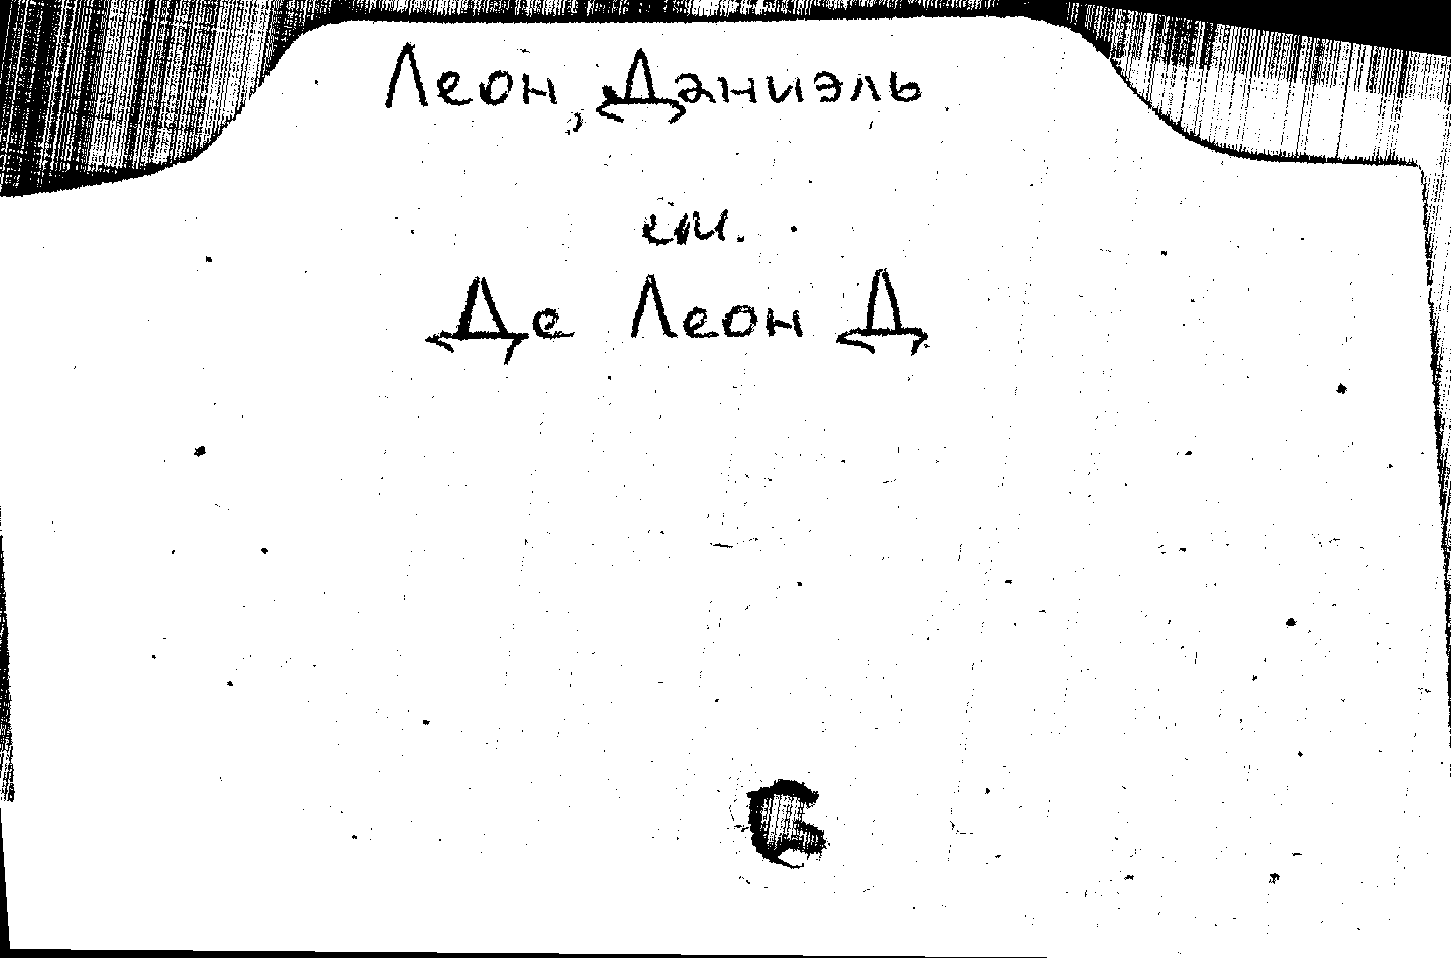 Леон, Даниэль
см.
Де Леон Д